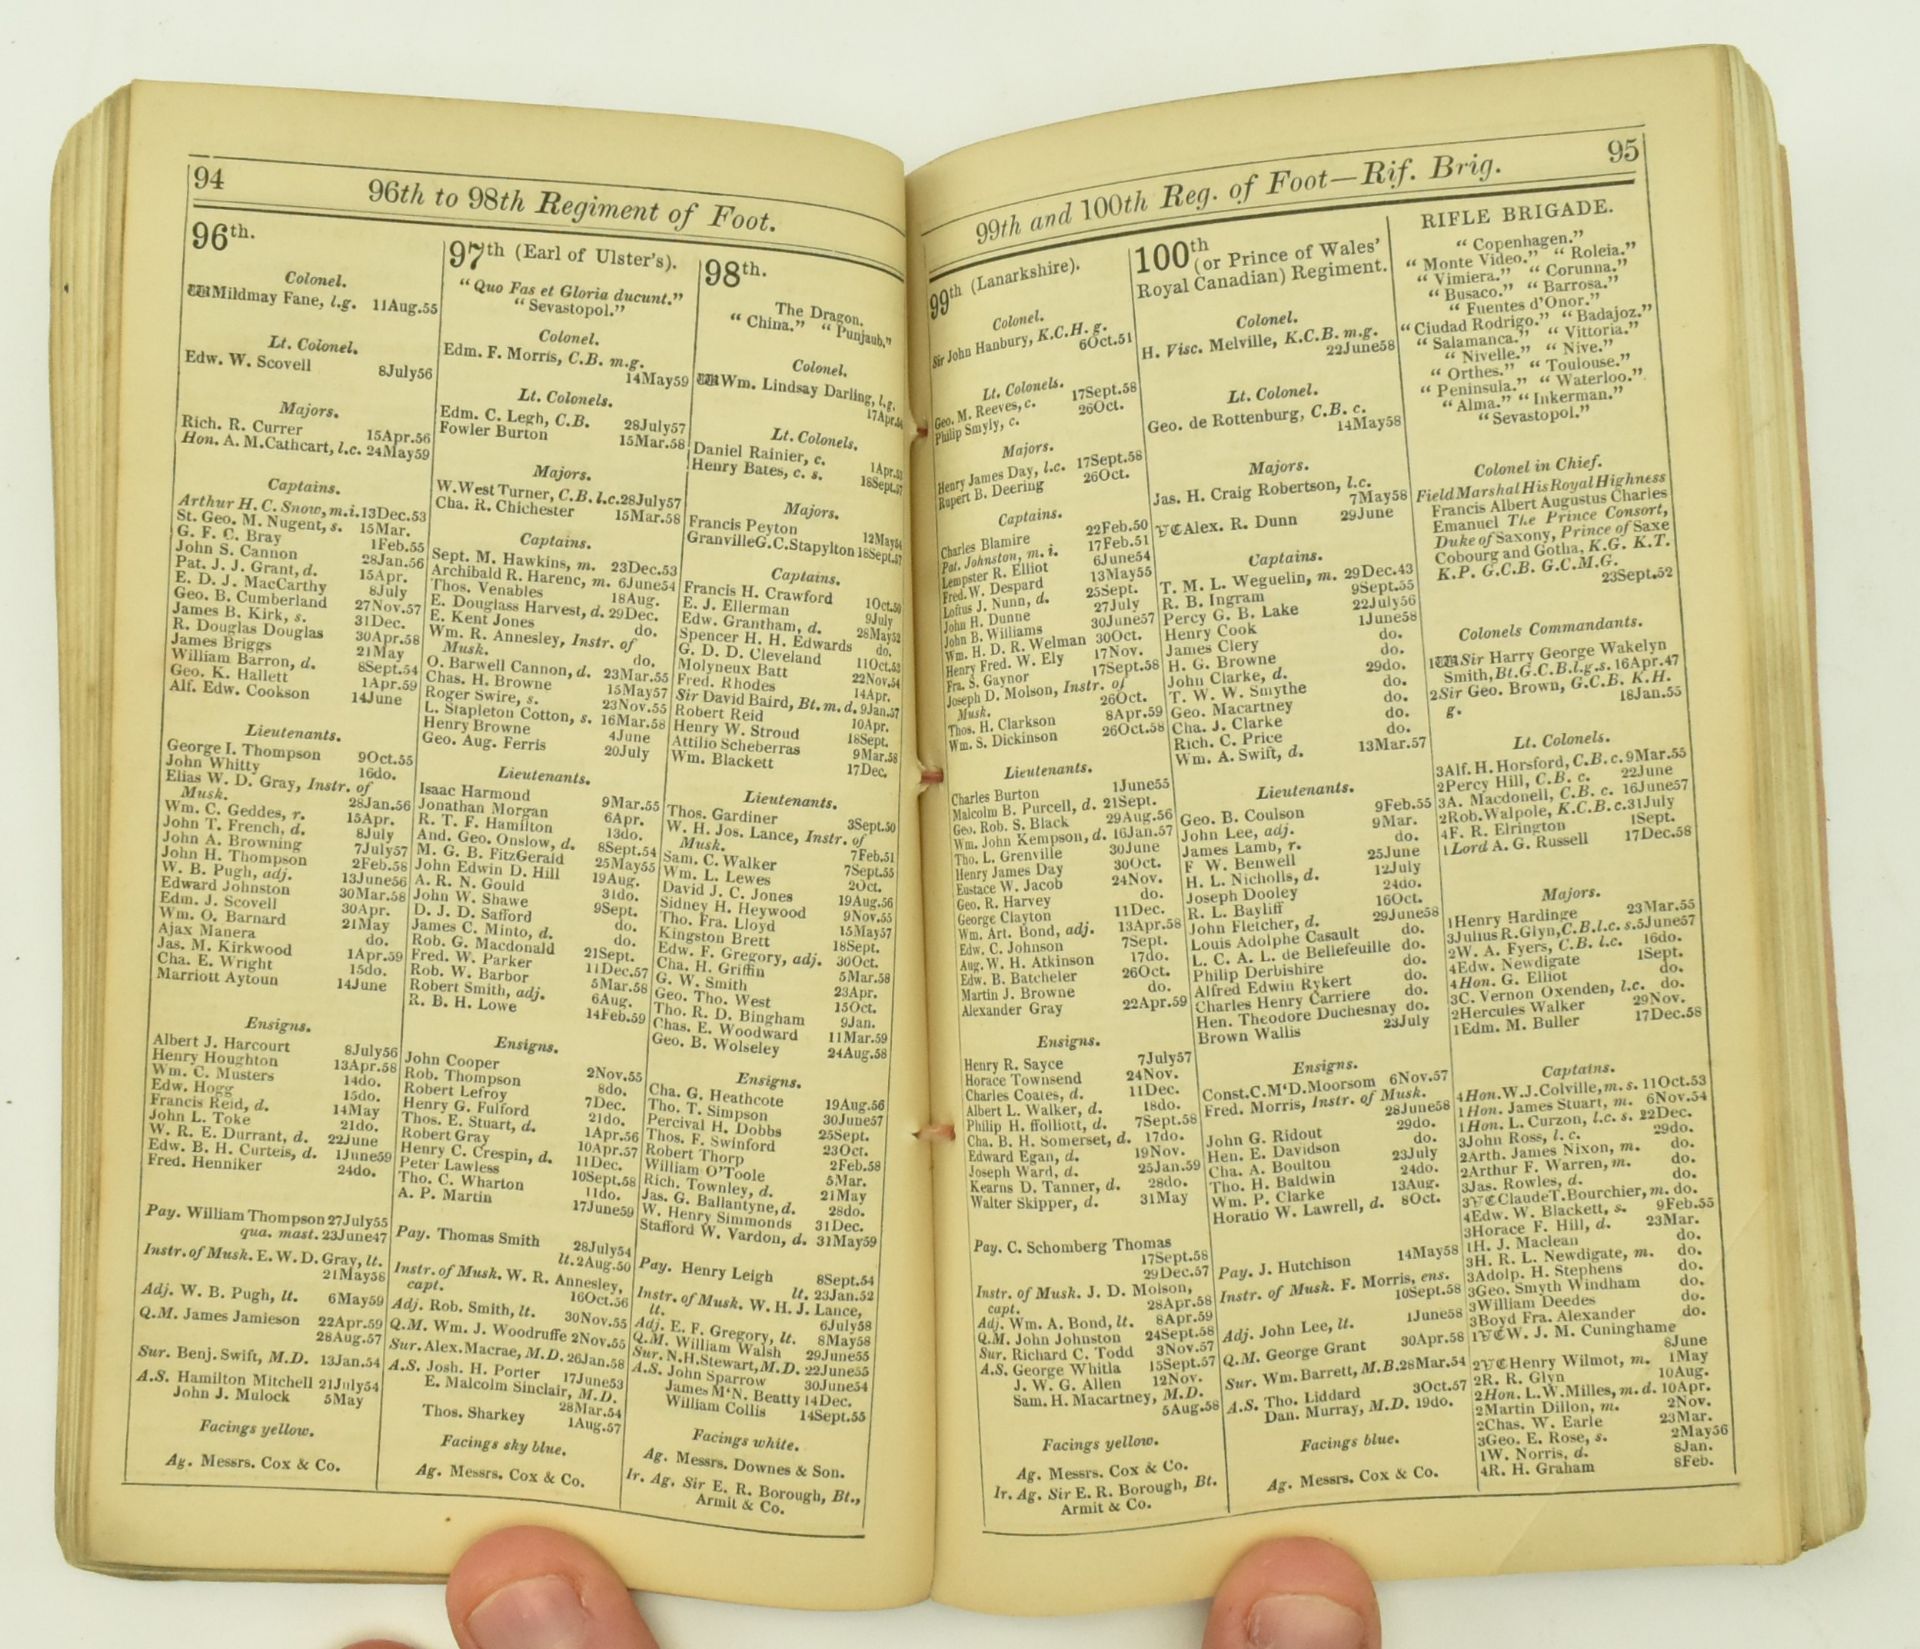 94
96th to 98th Regiment of Foot.
96th.
Colonel.
Mildmay Fane, l.g. 11Aug.55
Lt. Colonel.
Edw. W. Scovell 8July56
Majors.
Rich. R. Currer 15Apr.56
Hon. A. M.Cathcart, l.c. 24May59
Captains.
Arthur H. C. Snow, m.i. 13Dec.53
St. Geo. M. Nugent, s. 15Mar.
G. F. C. Bray 1Feb.55
John S. Cannon 28Jan.56
Pat. J. J. Grant, d. 15Apr.
E. D. J. MacCarthy 8July
Geo. B. Cumberland 27Nov.57
James B. Kirk, s. 31Dec.
R. Douglas Douglas 30Apr.58
James Briggs 21May
William Barron, d. 8Sept.54
Geo. K. Hallett 1Apr.59
Alf. Edw. Cookson 14June
Lieutenants.
George I. Thompson 9Oct.55
John Whitty 16do.
Elias W. D. Gray, Instr. of
Musk. 28Jan.56
Wm. C. Geddes, r. 15Apr.
John T. French, d. 8July
John A. Browning 7July57
John H. Thompson 2Feb.58
W. B. Pugh, adj. 13June56
Edward Johnston 30Mar.58
Edm. J. Scovell 30Apr.
Wm. O. Barnard 21May
Ajax Manera do.
Jas. M. Kirkwood 1Apr.59
Cha. E. Wright 15do.
Marriott Aytoun 14June
Ensigns.
Albert J. Harcourt 8July56
Henry Houghton 13Apr.58
Wm. C. Musters 14do.
Edw. Hogg 15do.
Francis Reid, d. 14May
John L. Toke 21do.
W. R. E. Durrant, d. 22June
Edw. B. H. Curteis, d. 1June59
Fred. Henniker 24do.
Pay. William Thompson 27July55
qua. mast. 23June47
Instr. of Musk. E. W. D. Gray, lt.
21May58
Adj. W. B. Pugh, lt. 6May59
Q.M. James Jamieson 22Apr.59
28Aug.57
Sur. Benj. Swift, M.D. 13Jan.54
A.S. Hamilton Mitchell 21July54
John J. Mulock 5May
Facings yellow.
Ag. Messrs. Cox & Co.
97th (Earl of Ulster's).
"Quo Fas et Gloria ducunt."
"Sevastopol."
Colonel.
Edm. F. Morris, C.B. m.g.
14May59
Lt. Colonels.
Edm. C. Legh, C.B. 28July57
Fowler Burton 15Mar.58
Majors.
W.West Turner, C.B. l.c.28July57
Cha. R. Chichester 15Mar.58
Captains.
Sept. M. Hawkins, m. 23Dec.53
Archibald R. Harenc, m. 6June54
Thos. Venables 18Aug.
E. Douglass Harvest, d. 29Dec.
E. Kent Jones do.
Wm. R. Annesley, Instr. of
Musk. do.
O. Barwell Cannon, d. 23Mar.55
Chas. H. Browne 15May57
Roger Swire, s. 23Nov.55
L. Stapleton Cotton, s. 16Mar.58
Henry Browne 4June
Geo. Aug. Ferris 20July
Lieutenants.
Isaac Harmond 9Mar.55
Jonathan Morgan 6Apr.
R. T. F. Hamilton 13do.
And. Geo. Onslow, d. 8Sept.54
M. G. B. FitzGerald 25May55
John Edwin D. Hill 19Aug.
A. R. N. Gould 31do.
John W. Shawe 9Sept.
D. J. D. Safford do.
James C. Minto, d. do.
Rob. G. Macdonald 21Sept.
Fred. W. Parker 11Dec.57
Rob. W. Barbor 5Mar.58
Robert Smith, adj. 6Aug.
R. B. H. Lowe 14Feb.59
Ensigns.
John Cooper 2Nov.55
Rob. Thompson 8do.
Robert Lefroy 7Dec.
Henry G. Fulford 21do.
Thos. E. Stuart, d. 1Apr.56
Robert Gray 10Apr.57
Henry C. Crespin, d. 11Dec.
Peter Lawless 10Sept.58
Tho. C. Wharton 11do.
A. P. Martin 17June59
Pay. Thomas Smith 28July54
lt. 2Aug.50
Instr. of Musk. W. R. Annesley,
capt. 16Oct.56
Adj. Rob. Smith, lt. 30Nov.55
Q.M. Wm. J. Woodruffe 2Nov.55
Sur. Alex. Macrae, M.D. 26Jan.58
A.S. Josh. H. Porter 17June53
E. Malcolm Sinclair, M.D.
28Mar.54
Thos. Sharkey 1Aug.57
Facings sky blue.
Ag. Messrs. Cox & Co.
98th.
The Dragon.
"China." "Punjaub."
Colonel.
Wm. Lindsay Darling, l.g.
17Apr.54
Lt. Colonels.
Daniel Rainier, c. 1Apr.
Henry Bates, c. s. 16Sept.57
Majors.
Francis Peyton 12May54
GranvilleG.C.Stapylton 18Sept.57
Captains.
Francis H. Crawford 1Oct.50
E. J. Ellerman 9July
Edw. Grantham, d. 28May52
Spencer H. H. Edwards do.
G. D. D. Cleveland 11Oct.53
Molyneux Batt 22Nov.54
Fred. Rhodes 14Apr.
Sir David Baird, Bt. m. d. 9Jan.57
Robert Reid 10Apr.
Henry W. Stroud 18Sept.
Attilio Scheberras 9Mar.58
Wm. Blackett 17Dec.
Lieutenants.
Thos. Gardiner 3Sept.50
W. H. Jos. Lance, Instr. of
Musk. 7Feb.51
Sam. C. Walker 7Sept.55
Wm. L. Lewes 2Oct.
David J. C. Jones 19Aug.56
Sidney H. Heywood 9Nov.55
Tho. Fra. Lloyd 15May57
Kingston Brett 18Sept.
Edw. F. Gregory, adj. 30Oct.
Cha. H. Griffin 5Mar.58
G. W. Smith 23Apr.
Geo. Tho. West 15Oct.
Tho. R. D. Bingham 9Jan.
Chas. E. Woodward 11Mar.59
Geo. B. Wolseley 24Aug.58
Ensigns.
Cha. G. Heathcote 19Aug.56
Tho. T. Simpson 30June57
Percival H. Dobbs 25Sept.
Thos. F. Swinford 23Oct.
Robert Thorp 2Feb.58
William O'Toole 5Mar.
Rich. Townley, d. 21May
Jas. G. Ballantyne, d. 28do.
W. Henry Simmonds 31Dec.
Stafford W. Vardon, d. 31May59
Pay. Henry Leigh 8Sept.54
lt. 23Jan.52
Instr. of Musk. W. H. J. Lance,
lt. 6July58
Adj. E. F. Gregory, lt. 8May58
Q.M. William Walsh 29June55
Sur. N.H.Stewart, M.D. 22June55
A.S. John Sparrow 30June54
James M'N. Beatty 14Dec.
William Collis 14Sept.55
Facings white.
Ag. Messrs. Downes & Son.
Ir. Ag. Sir E. R. Borough, Bt.,
Armit & Co.
99th and 100th Reg. of Foot—Rif. Brig.
95
99th (Lanarkshire).
Colonel.
Sir John Hanbury, K.C.H. g.
6Oct.51
Lt. Colonels.
Geo. M. Reeves, c. 17Sept.58
Philip Smyly, c. 26Oct.
Majors.
Henry James Day, l.c. 17Sept.58
Rupert B. Deering 26Oct.
Captains.
Charles Blamire 22Feb.50
Pat. Johnston, m. i. 17Feb.51
Lempster R. Elliot 6June54
Fred. W. Despard 13May55
Loftus J. Nunn, d. 25Sept.
John H. Dunne 27July
John B. Williams 30June57
Wm. H. D. R. Welman 30Oct.
Henry Fred. W. Ely 17Nov.
Fra. S. Gaynor 17Sept.58
Joseph D. Molson, Instr. of
Musk. 26Oct.
Thos. H. Clarkson 8Apr.59
Wm. S. Dickinson 26Oct.58
Lieutenants.
Charles Burton 1June55
Malcolm B. Purcell, d. 21Sept.
Geo. Rob. S. Black 29Aug.56
Wm. John Kempson, d. 16Jan.57
Tho. L. Grenville 30June
Henry James Day 30Oct.
Eustace W. Jacob 24Nov.
Geo. R. Harvey do.
George Clayton 11Dec.
Wm. Art. Bond, adj. 13Apr.58
Edw. C. Johnson 7Sept.
Aug. W. H. Atkinson 17do.
Edw. B. Batcheler 26Oct.
Martin J. Browne do.
Alexander Gray 22Apr.59
Ensigns.
Henry R. Sayce 7July57
Horace Townsend 24Nov.
Charles Coates, d. 11Dec.
Albert L. Walker, d. 18do.
Philip H. ffolliott, d. 7Sept.58
Cha. B. H. Somerset, d. 17do.
Edward Egan, d. 19Nov.
Joseph Ward, d. 25Jan.59
Kearns D. Tanner, d. 28do.
Walter Skipper, d. 31May
Pay. C. Schomberg Thomas
17Sept.58
29Dec.57
Instr. of Musk. J. D. Molson,
capt. 28Apr.58
Adj. Wm. A. Bond, lt. 8Apr.59
Q.M. John Johnston 24Sept.58
Sur. Richard C. Todd 3Nov.57
A.S. George Whitla 15Sept.57
J. W. G. Allen 12Nov.
Sam. H. Macartney, M.D.
5Aug.58
Facings yellow.
Ag. Messrs. Cox & Co.
Ir. Ag. Sir E. R. Borough, Bt.
Armit & Co.
100th (or Prince of Wales'
Royal Canadian) Regiment.
Colonel.
H. Visc. Melville, K.C.B. m.g.
22June58
Lt. Colonel.
Geo. de Rottenburg, C.B. c.
14May58
Majors.
Jas. H. Craig Robertson, l.c.
7May58
VC Alex. R. Dunn 29June
Captains.
T. M. L. Weguelin, m. 29Dec.43
R. B. Ingram 9Sept.55
Percy G. B. Lake 22July56
Henry Cook 1June58
James Clery do.
H. G. Browne do.
John Clarke, d. 29do.
T. W. W. Smythe do.
Geo. Macartney do.
Cha. J. Clarke do.
Rich. C. Price do.
Wm. A. Swift, d. 13Mar.57
Lieutenants.
Geo. B. Coulson 9Feb.55
John Lee, adj. 9Mar.
James Lamb, r. do.
F W. Benwell 25June
H. L. Nicholls, d. 12July
Joseph Dooley 24do.
R. L. Bayliff 16Oct.
John Fletcher, d. 29June58
Louis Adolphe Casault do.
L. C. A. L. de Bellefeuille do.
Philip Derbishire do.
Alfred Edwin Rykert do.
Charles Henry Carriere do.
Hen. Theodore Duchesnay do.
Brown Wallis 23July
Ensigns.
Const.C.M'D.Moorsom 6Nov.57
Fred. Morris, Instr. of Musk.
28June58
John G. Ridout 29do.
Hen. E. Davidson do.
Cha. A. Boulton 23July
Tho. H. Baldwin 24do.
Wm. P. Clarke 13Aug.
Horatio W. Lawrell, d. 8Oct.
Pay. J. Hutchison 14May58
Instr. of Musk. F. Morris, ens.
10Sept.58
Adj. John Lee, lt. 1June58
Q.M. George Grant 30Apr.58
Sur. Wm. Barrett, M.B.28Mar.54
A.S. Tho. Liddard 3Oct.57
Dan. Murray, M.D. 19do.
Facings blue.
Ag. Messrs. Cox & Co.
RIFLE BRIGADE.
"Copenhagen."
"Monte Video." "Roleia."
"Vimiera." "Corunna."
"Busaco." "Barrosa."
"Fuentes d'Onor."
"Ciudad Rodrigo." "Badajoz."
"Salamanca." "Vittoria."
"Nivelle." "Nive."
"Orthes." "Toulouse."
"Peninsula." "Waterloo."
"Alma." "Inkerman."
"Sevastopol."
Colonel in Chief.
Field Marshal His Royal Highness
Francis Albert Augustus Charles
Emanuel The Prince Consort,
Duke of Saxony, Prince of Saxe
Cobourg and Gotha, K.G. K.T.
K.P. G.C.B. G.C.M.G.
23Sept.52
Colonels Commandants.
1 Sir Harry George Wakelyn
Smith, Bt. G.C.B. l.g. s. 16Apr.47
2Sir Geo. Brown, G.C.B. K.H.
g. 18Jan.55
Lt. Colonels.
3Alf. H. Horsford, C.B. c. 9Mar.55
2Percy Hill, C.B. c. 22June
3A. Macdonell, C.B. c. 16June57
2Rob. Walpole, K.C.B.c.31July
4F. R. Elrington 1Sept.
1Lord A. G. Russell 17Dec.58
Majors.
1Henry Hardinge 23Mar.55
3Julius R. Glyn, C.B.l.c. s.5June57
2W. A. Fyers, C.B. l.c. 16do.
4Edw. Newdigate 1Sept.
4Hon. G. Elliot do.
3C. Vernon Oxenden, l.c. do.
2Hercules Walker 29Nov.
1Edm. M. Buller 17Dec.58
Captains.
4Hon. W. J. Colville, m. s. 11Oct.53
1Hon. James Stuart, m. 6Nov.54
1Hon. L. Curzon, l.c. s. 22Dec.
3John Ross, l. c. 29do.
2Arth. James Nixon, m. do.
2Arthur F. Warren, m. do.
3Jas. Rowles, d. do.
3VC ClaudeT.Bourchier, m. do.
4Edw. W. Blackett, s. 9Feb.55
3Horace F. Hill, d. 23Mar.
1H. J. Maclean do.
3H. R. L. Newdigate, m. do.
3Adolp. H. Stephens do.
3Geo. Smyth Windham do.
3William Deedes do.
3Boyd Fra. Alexander do.
1VC W. J. M. Cuninghame
8June
2VC Henry Wilmot, m. 1May
2R. R. Glyn 10Aug.
2Hon. L. W. Milles, m. d. 10Apr.
2Martin Dillon, m. 2Nov.
2Chas. W. Earle 23Mar.
3Geo. E. Rose, s. 2May56
1W. Norris, d. 8Jan.
4R. H. Graham 8Feb.